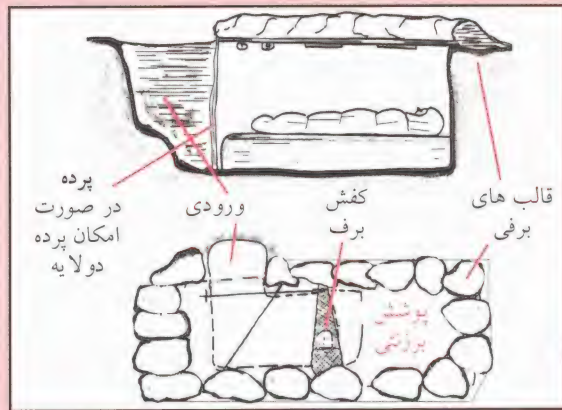 قالب های
برفی
کفش
برف
ورودی
پرده
در صورت
امکان پرده
دولایه
پوشش
برزنتی